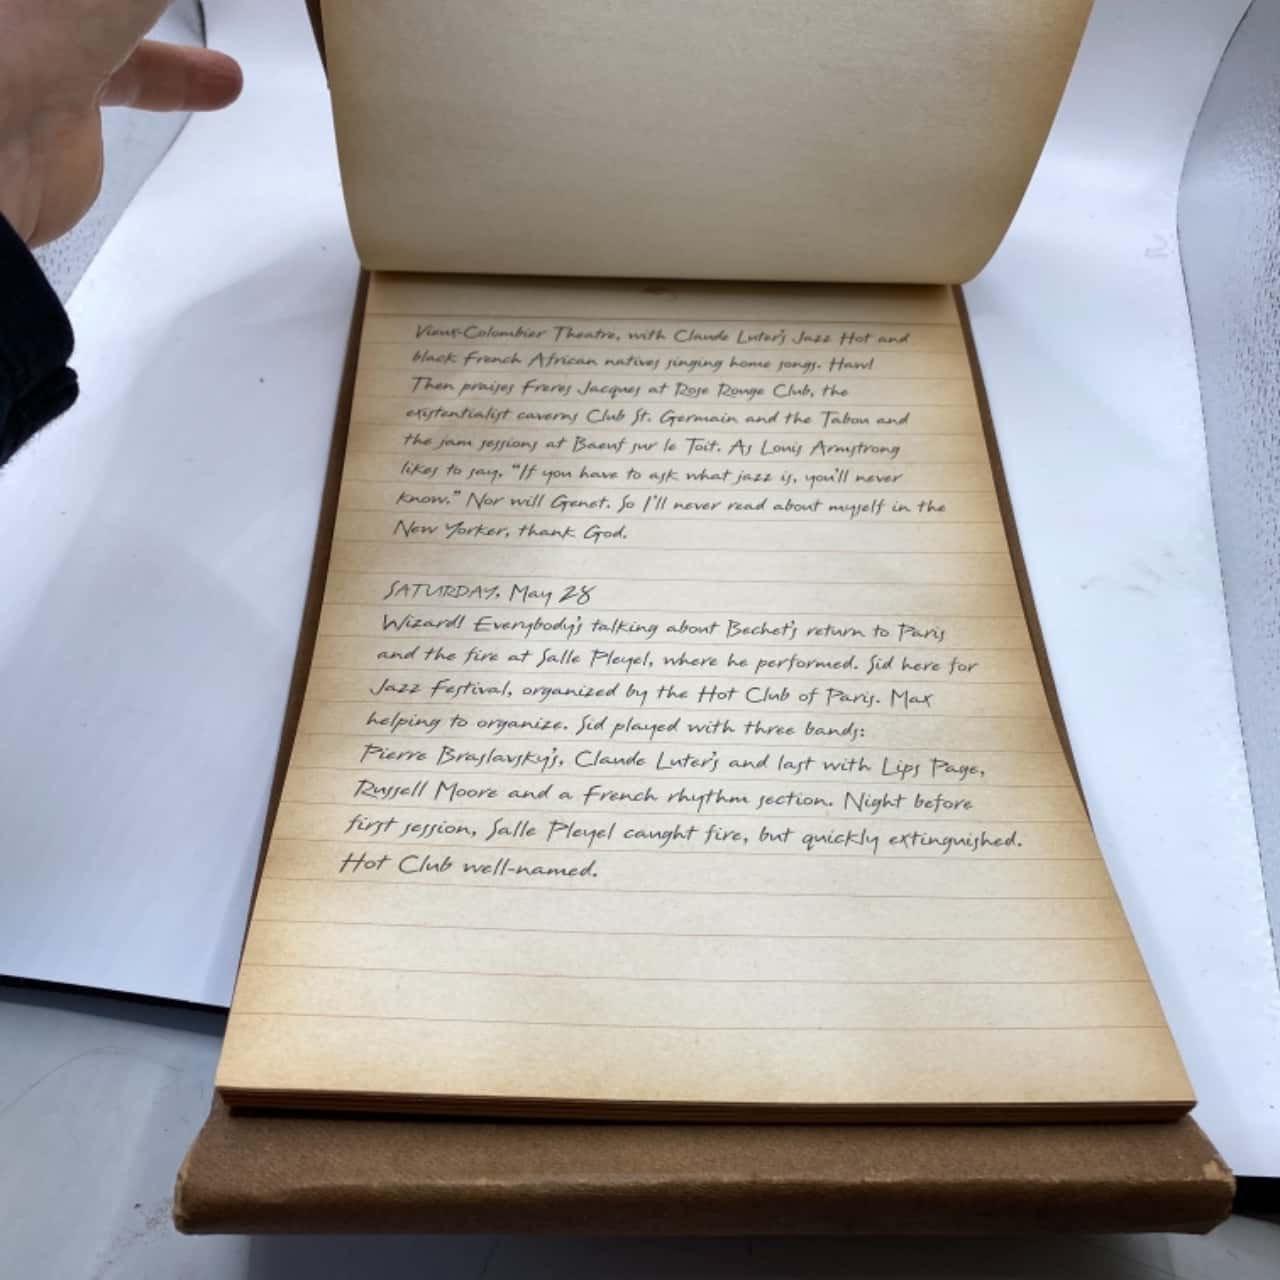 Vieux-Colombier Theatre, with Claude Luter's Jazz Hot and
black French African natives singing home songs. Haw!
Then praises Freres Jacques at Rose Rouge Club, the
existentialist caverns Club St. Germain and the Tabou and
the jam sessions at Baeuf sur le Toit. As Louis Armstrong
likes to say, "If you have to ask what jazz is, you'll never
know." Nor will Genet. So I'll never read about myself in the
New Yorker, thank God.
SATURDAY, May 28
Wizard! Everybody's talking about Bechet's return to Paris
and the fire at Salle Pleyel, where he performed. Sid here for
Jazz Festival, organized by the Hot Club of Paris. Max
helping to organize. Sid played with three bands:
Pierre Braslavsky's, Claude Luter's and last with Lips Page,
Russell Moore and a French rhythm section. Night before
first session, Salle Pleyel caught fire, but quickly extinguished.
Hot Club well-named.